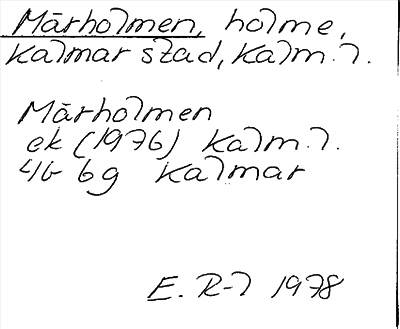 Mārholmen, holme,
Kalmar stad, Kalm. l.
Mārholmen
ek (1976) Kalm. l.
4G 6g Kalmar
E. R-l 1978